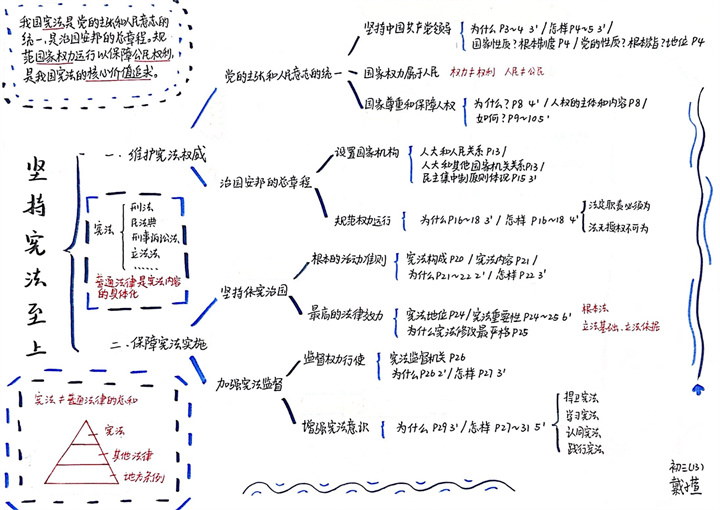 我国宪法是党的主张和人民意志的
统一,是治国安邦的总章程。规
范国家权力运行以保障公民权利,
是我国宪法的核心价值追求。
坚持宪法至上
一、维护宪法权威
党的主张和人民意志的统一
坚持中国共产党领导
为什么P3~4 3'/怎样P4~5 3'/
国家性质?根本制度P4/党的性质?根本宗旨?地位P4
国家权力属于人民
权力≠权利 人民≠公民
国家尊重和保障人权
为什么?P8 4'/人权的主体和内容P8/
如何?P9~10 5'
治国安邦的总章程
设置国家机构
人大和人民关系P13/
人大和其他国家机关关系P13/
民主集中制原则体现P15 3'
规范权力运行
为什么P16~18 3'/怎样P16~18 4'
法定职责必须为
法无授权不可为
宪法
刑法
民法典
刑事诉讼法
立法法
……
普通法律是宪法内容
的具体化
二、保障宪法实施
坚持依宪治国
根本的活动准则
宪法构成P20/宪法内容P21/
为什么P21~22 2'/怎样P22 3'
最高的法律效力
宪法地位P24/宪法重要性P24~25 6'
为什么宪法修改最严格P25
根本法
立法基础、立法依据
加强宪法监督
监督权力行使
宪法监督机关P26
为什么P26 2'/怎样P27 3'
增强宪法意识
为什么P29 3'/怎样P27~31 5'
捍卫宪法
学习宪法
认同宪法
践行宪法
宪法≠普通法律的总和
宪法
其他法律
地方条例
初三(13)